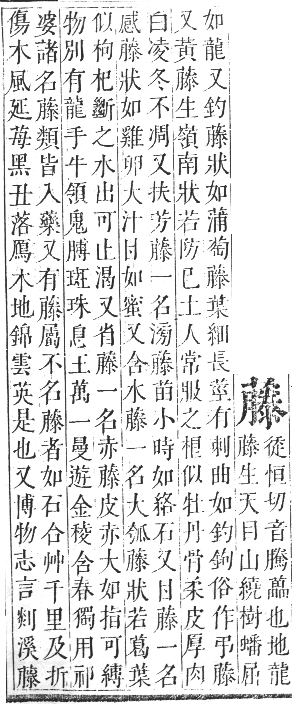 藤
徒恒切音騰藟也地龍
藤生天目山繞樹蟠屈
如龍又釣藤狀如蒲萄藤葉細長莖有刺曲如釣鉤俗作弔藤
又黃藤生嶺南狀若防已土人常服之根似牡丹骨柔皮厚肉
白凌冬不凋又扶芳藤一名滂藤苗小時如絡石又甘藤一名
感藤狀如雞卵大汁甘如蜜又含水藤一名大瓠藤狀若葛葉
似枸杞斷之水出可止渴又省藤一名赤藤皮赤大如指可縛
物別有龍手牛領鬼膊斑珠息王萬一曼遊金稜含春獨用祁
婆諸名藤類皆入藥又有藤屬不名藤者如石合艸千里及折
傷木風延苺黑丑落鴈木地錦雲英是也又博物志言剡溪藤